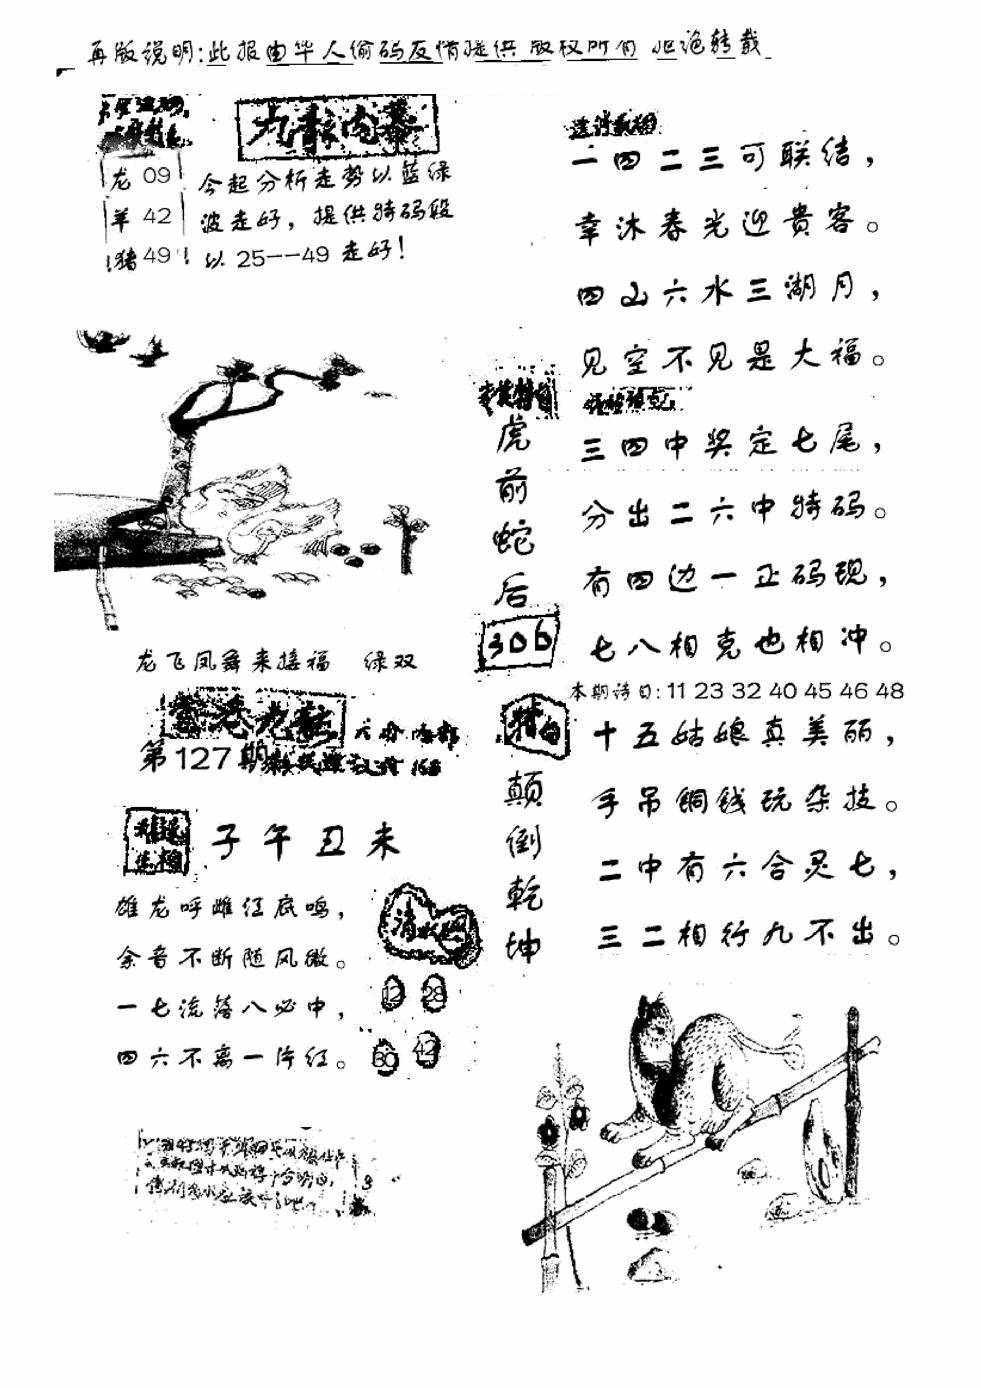 再版说明:此报由华人偷码友情提供 版权所有 拒绝转载
九龙内幕
龙 09
羊 42
猪 49
今起分析走势以蓝绿
波走好，提供特码段
以 25--49 走好！
一四二三可联结，
幸沐春光迎贵客。
四山六水三湖月，
见空不见是大福。
虎前蛇后
306
三四中奖定七尾，
分出二六中特码。
有四边一正码现，
七八相克也相冲。
本期诗曰: 11 23 32 40 45 46 48
龙飞凤舞来接福 绿双
香港九龙
第127期
168
特白
颠倒乾坤
十五姑娘真美丽，
手吊铜钱玩杂技。
二中有六合灵七，
三二相行九不出。
子午丑未
雄龙呼雌江底鸣，
余音不断随风微。
一七流落八必中，
四六不离一片红。
12 28
30 42